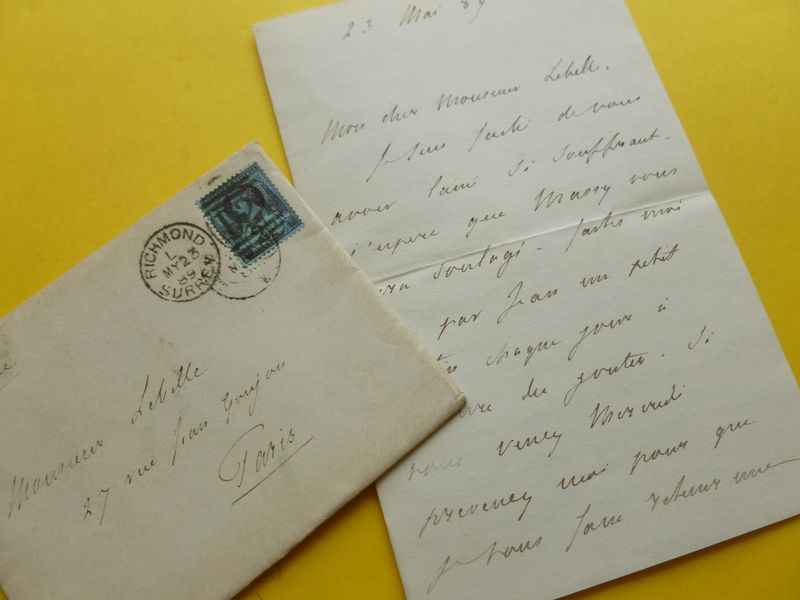 RICHMOND
L
MY 23
89
SURREY
Monsieur Lebelle
27 rue Jean Goujon
Paris
23 Mai 89
Mon cher Monsieur Lebelle.
Je suis fâché de vous
avoir laissé si souffrant.
j'espère que Massy vous
soulagé - faites moi
par Jean un petit
chaque jour à
du gouter. Si
vous venez Mercredi
prevenez moi pour que
je vous fasse retenir une